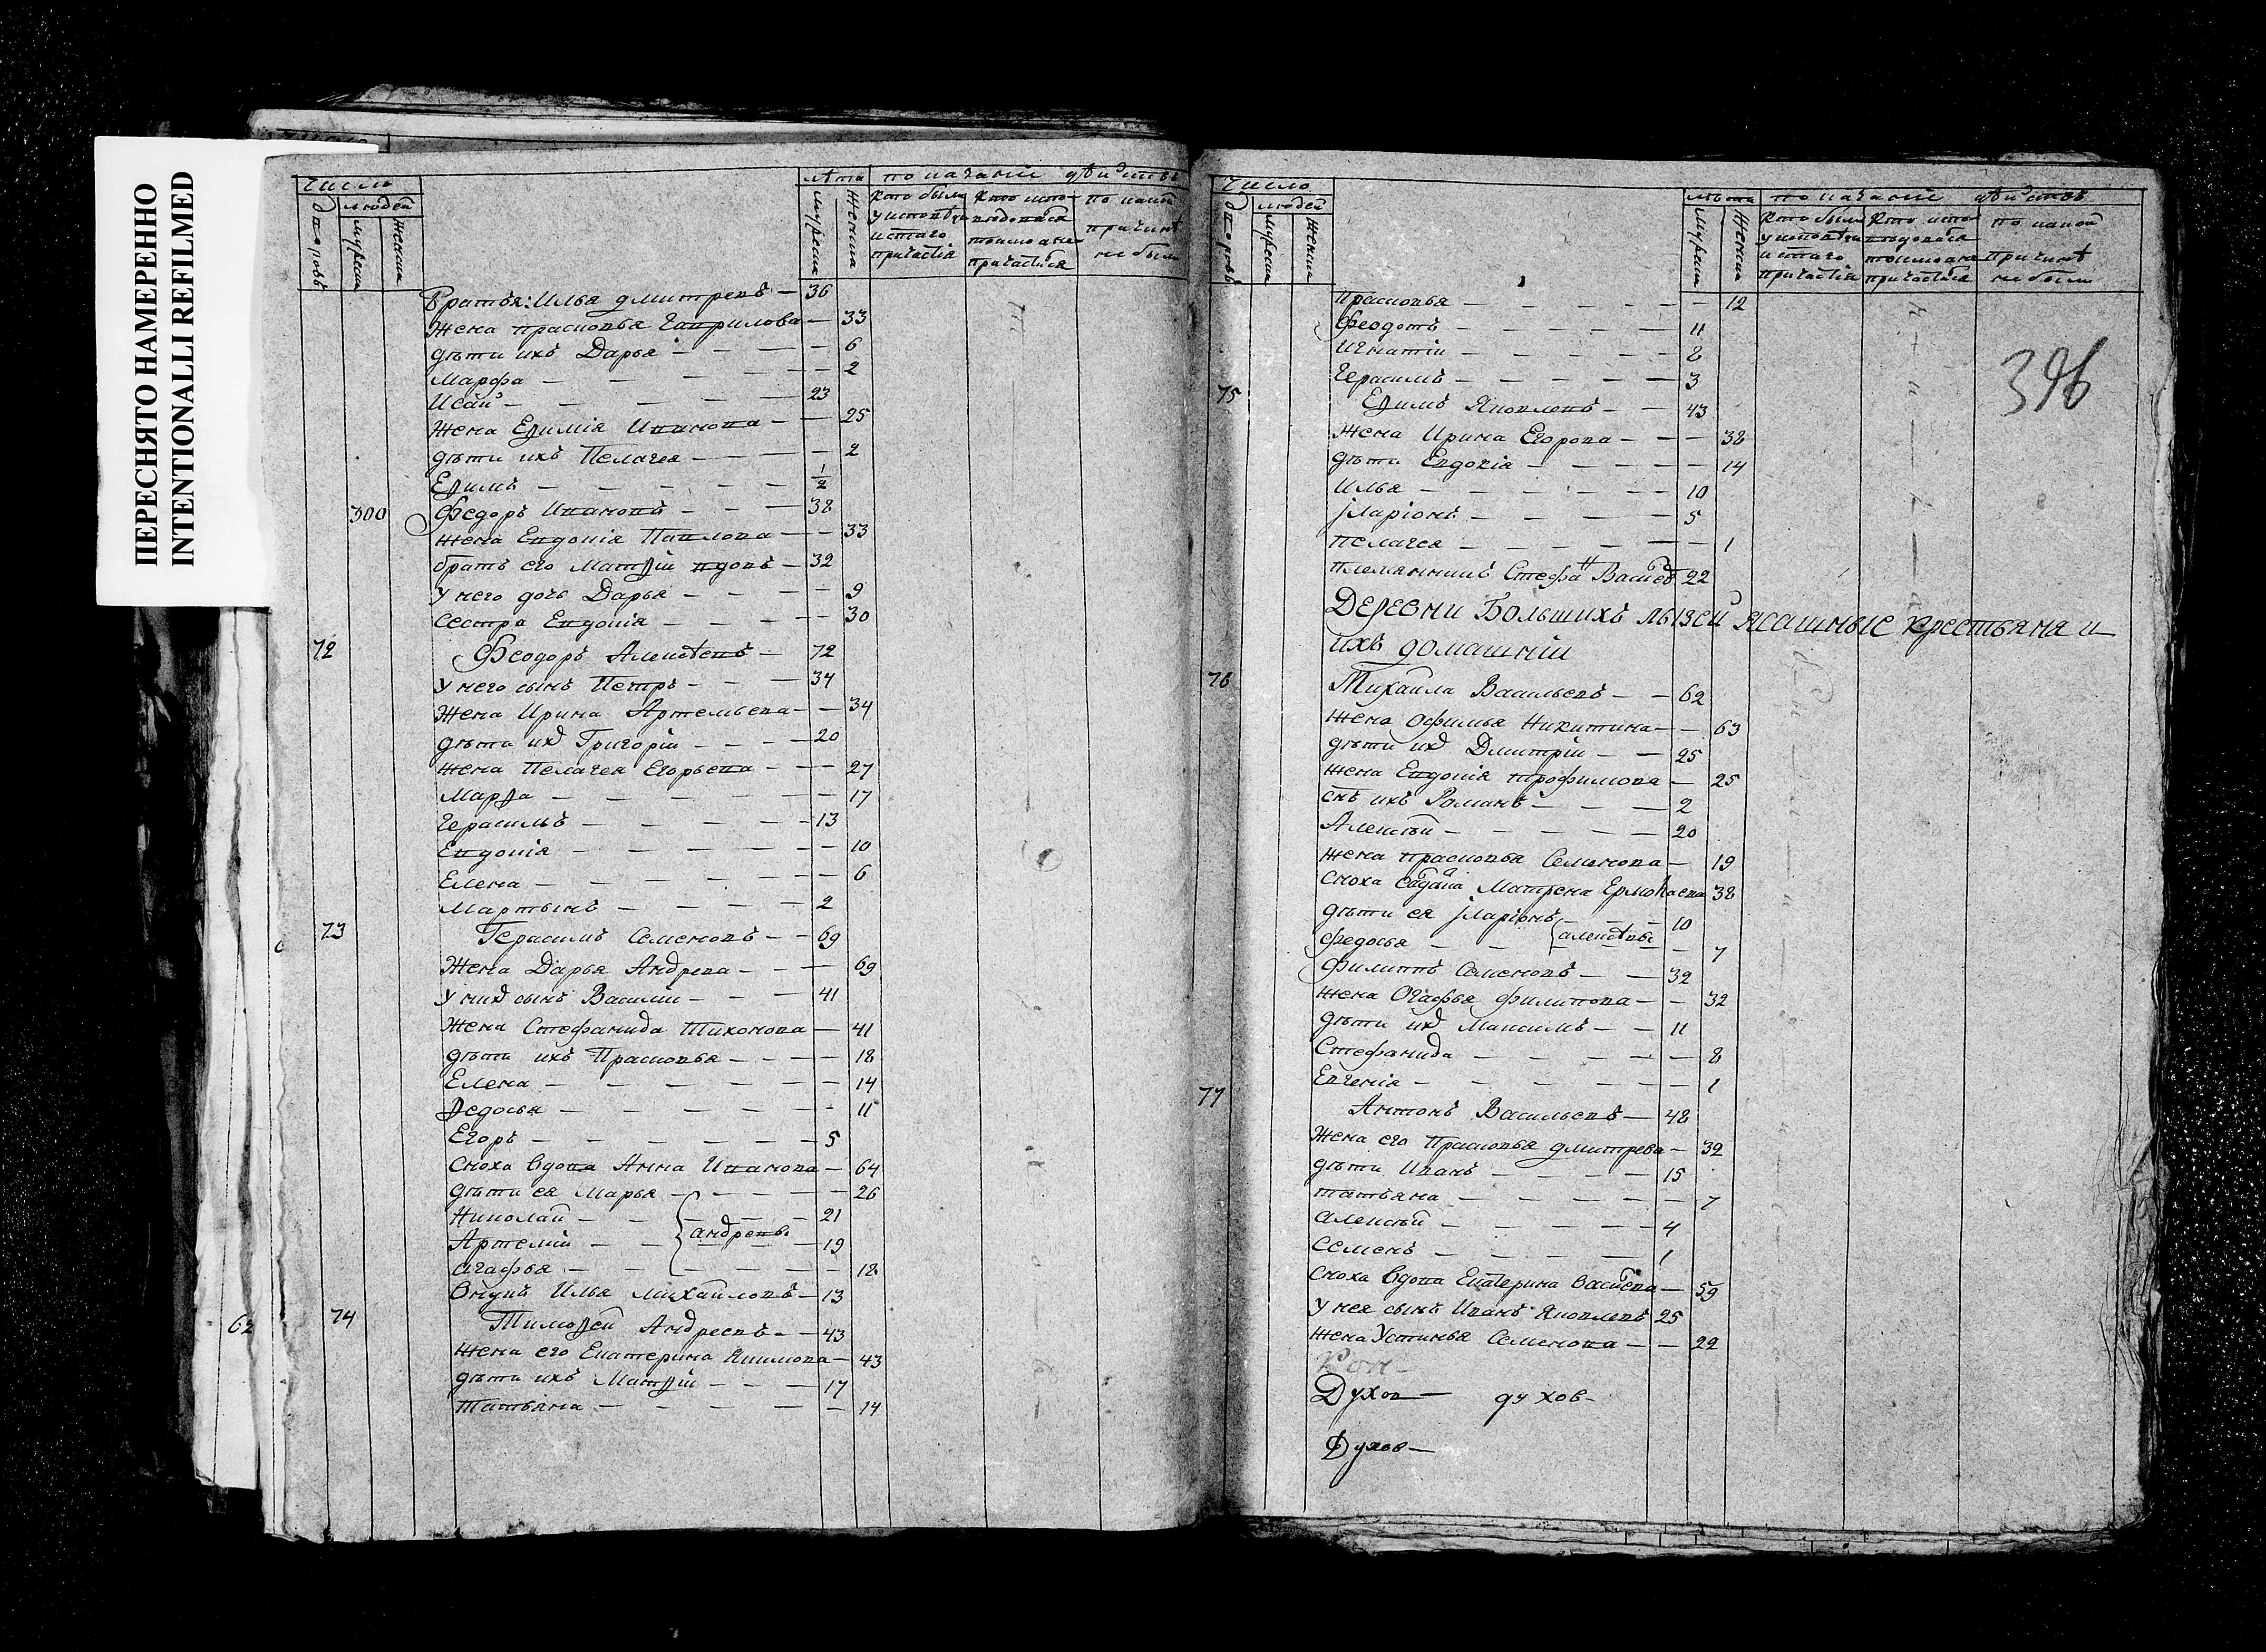 ПЕРЕСНЯТО НАМЕРЕННО
INTENTIONALLI REFILMED
число
людей
дворовъ
мужеска
женска
лѣта
мужеска
женска
по показанiи дѣиство
кто были
у исповѣди
и стаго
причастiя
кто испо
вѣдовался
токмо а не
причастiлся
по какой
причинѣ
не были
Братья: Илья дмитревъ — 36
Жена прасковья Гаврилова — 33
дѣти ихъ Дарья — 6
Марфа — 2
Исаи — 23
Жена Еѳимiя Иванова — 25
дѣти ихъ Пелагея — 2
Еѳимъ — 1/2
300 Федоръ Ивановъ — 38
жена Евдокiя Павлова — 33
братъ его Матѳiи вдовъ — 32
у него дочь Дарья — 9
сестра Евдокiя — 30
72 Феодоръ Алексѣевъ — 72
у него сынъ Петръ — 34
Жена Ирина Артемьева — 34
дѣти их Григорiи — 20
жена Пелагея Егорьева — 27
Марѳа — 17
Герасимъ — 13
Евдокiя — 10
Елена — 6
Мартынъ — 2
73 Герасимъ Семеновъ — 69
Жена Дарья Андрева — 69
У них сынъ Василiи — 41
Жена Стефанида Тихонова — 41
дѣти ихъ Прасковья — 18
Елена — 14
Ѳедосья — 11
Егоръ — 5
сноха вдова Анна Иванова — 64
дѣти ея Марья — 26
Николаи — 21
Артемiи — андревы — 19
агафья — 18
Внукъ Илья михаиловъ — 13
62
74 Тимоѳеи Андреевъ — 43
жена его Екатерина Якимова — 43
дѣти ихъ Матѳiи — 17
Татьяна — 14
число
людей
дворовъ
мужеска
женска
лѣта
мужеска
женска
по показанiи дѣиство
кто были
у исповѣди
и стаго
причастiя
кто испо
вѣдовался
токмо а не
причастiлся
по какой
причинѣ
не были
396
Прасковья — 12
Феодотъ — 11
Игнатiи — 8
Герасимъ — 3
75 Еѳимъ Яковлевъ — 43
жена Ирина Егорова — 38
дѣти Евдокiя — 14
Илья — 10
iларiонъ — 5
пелагея — 1
племянникъ Стефан Василев 22
Деревни Большихъ Лызей ясашные крестьяна и
ихъ домашнiи
76 Михаила Васильевъ — 62
жена Офимья Никитина — 63
дѣти их Дмитрiи — 25
жена Евдокiя трофимова — 25
снъ ихъ Романъ — 2
Алексѣи — 20
жена прасковья Семенова — 19
сноха салдатка Матрена Ермолаева 38
дѣти ея iларiонъ — 10
Федосья — алексѣевы — 7
Филиппъ Семеновъ — 32
жена Огафья филипова — 32
дѣти их Максимъ — 11
Стефанида — 8
Евгенiя — 1
77 Антонъ Васильевъ — 48
жена его Прасковья дмитрева — 39
дѣти Иванъ — 15
татьяна — 7
алексѣи — 4
Семенъ — 1
сноха вдова Екатерина Василева — 59
у нея сынъ Иванъ Яковлевъ 25
жена Устинья Семенова — 22
Духов — духов —
Духов —